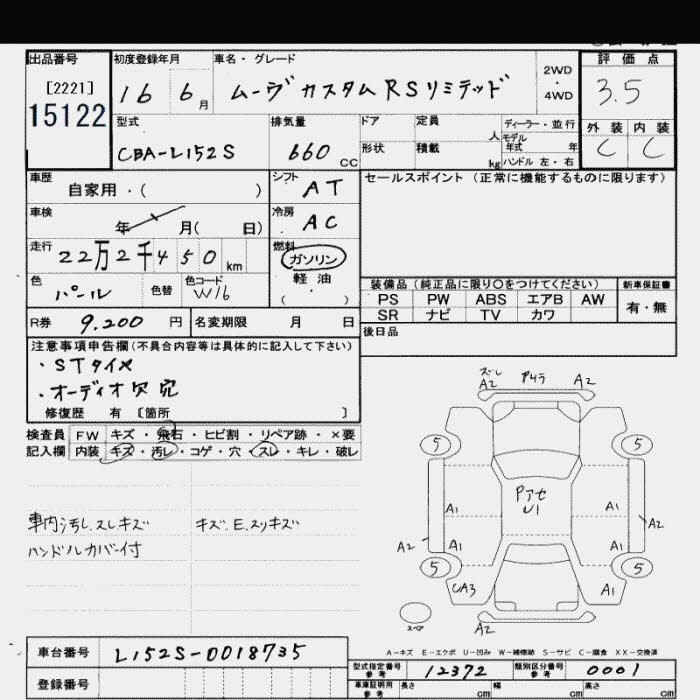 出品番号
[2221]
15122
初度登録年月
16 6月
車名・グレード
ムーヴカスタムRSリミテッド
2WD
・
4WD
評価点
3.5
外装 内装
C C
型式
CBA-L152S
排気量
660 CC
ドア 定員 人
形状 積載 kg
ディーラー・並行
モデル
年式 年
ハンドル 左・右
車歴
自家用・( )
シフト
AT
セールスポイント(正常に機能するものに限ります)
車検
年 月( 日)
冷房
AC
走行
22万2千450km
燃料
ガソリン
軽油
( ・ )
色
パール
色替
色コード
W16
装備品(純正品に限り○をつけてください)
新車保証書
PS PW ABS エアB AW
有・無
SR ナビ TV カワ
R券 9,200 円
名変期限 月 日
後日品
注意事項申告欄(不具合内容等は具体的に記入して下さい)
・STタイメ
・オーディオ欠 穴
修復歴 有 〔箇所 〕
検査員 FW キズ・飛石・ヒビ割・リペア跡・×要
記入欄 内装 キズ・汚レ・コゲ・穴・スレ・キレ・破レ
車内汚し.スレキズ
キズ.E.スリキズ
ハンドルカバー付
ズレ
A2 A2
5 5
Pアセ
U1
A1 A1
A2 A1 A1 A2
5 5
UA3 A1
スペア
A2
A-キズ E-エクボ U-凹み W-補修跡 S-サビ C-腐食 XX-交換済
車台番号 L152S-0018735
型式指定番号
参考
12372
類別区分番号
参考
0001
登録番号
車庫証明用
参考
長さ cm 幅 cm 高さ cm